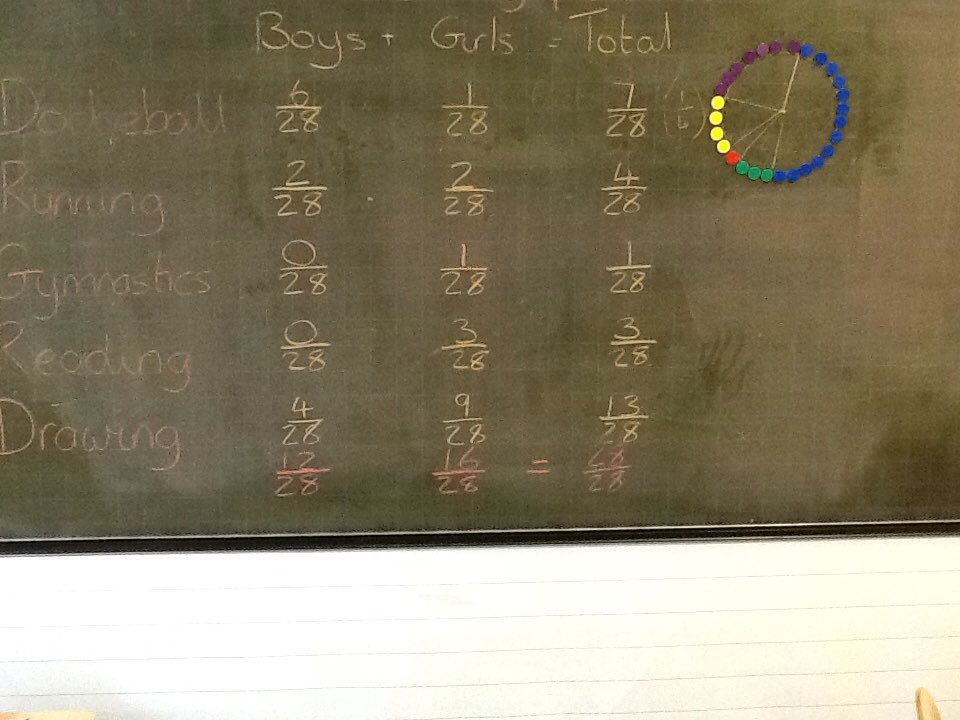 Boys + Girls = Total
Dodgeball 6/28 1/28 7/28
Running 2/28 2/28 4/28
Gymnastics 0/28 1/28 1/28
Reading 0/28 3/28 3/28
Drawing 4/28 9/28 13/28
12/28 16/28 = 28/28